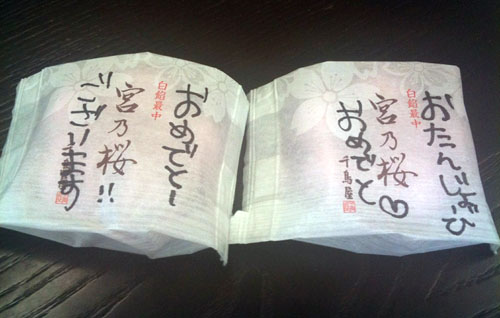 おめでとー
白餡最中
宮乃桜
ございます!!
おたんじょうび
白餡最中
宮乃桜
おめでと♡
千鳥屋